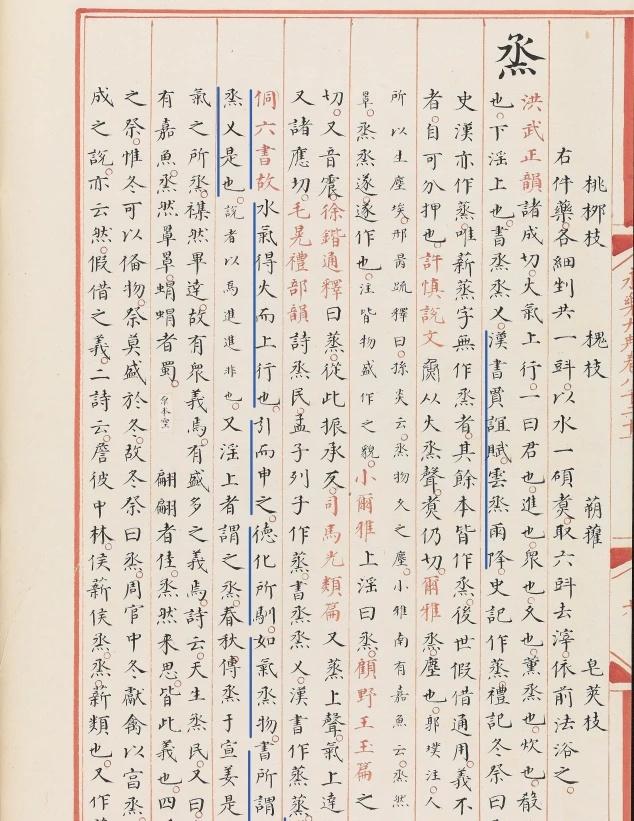 桃桞枝 槐枝 蒴藋 皂莢枝
右件藥各細剉共一㪷。以水一碩煑。取六㪷去滓。依前法浴之。
烝
洪武正韻諸成切。火氣上行。一曰君也。進也。衆也。久也。薫烝也。炊也。殽
也。下淫上也。書烝烝乂。漢書賈誼賦。雲烝雨降。史記作蒸。禮記冬祭曰
史漢亦作蒸。唯薪蒸字無作烝者。其餘本皆作烝。後世假借通用。義不
者。自可分押也。許慎說文 从火烝聲。煑仍切。爾雅烝。塵也。郭璞注。人
所以生塵埃。邢昺疏釋曰。孫炎云。烝物久之塵。小雅南有嘉魚云。烝然
罩。烝烝遂遂。作也。注皆物盛作之貌。小爾雅上淫曰烝。顧野王玉篇之
切。又音震。徐鍇通釋曰。蒸。從此振承反。司馬光類篇又蒸上聲。氣上達
又諸應切。毛晃禮部韻詩烝民。孟子列子作蒸。書烝烝乂。漢書作蒸蒸
侗六書故水氣得火而上行也。引而申之。德化所馴。如氣烝物。書所謂
烝乂是也。說者以馬進進非也。又淫上者謂之烝。春秋傳烝于宣姜是
氣之所烝。襍然畢達。故有衆義焉。有盛多之義焉。詩云。天生烝民。又曰
有嘉魚。烝然罩罩。蜎蜎者蜀。翩翩者佳。烝然来思。皆此義也。四
之祭。惟冬可以備物。祭莫盛於冬。故冬祭曰烝。周官中冬獻禽以享烝
成之說。亦云然。假借之義。二詩云。詹彼中林。侯薪侯烝。烝。薪類也。又作